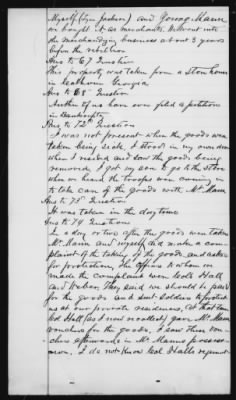 Myself (Lyn Jackson) and George Mann
we bought it as merchants. We went into
the merchandizing business about 3 years
before the rebellion
Ans to 67 Question
This property was taken from a store house
in Georgia
Ans to 68 Question
Neither of us have ever filed a petition
in Bankruptcy
Ans to 72d Question
I was not present when the goods were
taken being sick. I stood in my own door
when I rested and saw the goods being
removed. I got my son to go to the store
when we heard the troops were coming in
to take care of the goods with Mr. Mann
Ans to 73d Question
It was taken in the day time
Ans to 74 Question
In a day or two after the goods were taken
Mr. Mann and myself did make a com-
plaint of the taking of the goods, and asked
for protection, the officers to whom we
made the complaint were Cols Hall
and Weber. They said we should be paid
for the goods and sent soldiers to protect
us at our private residences. At that time
Col Hall (as I now recollect) gave Mr. Mann
vouchers for the goods. I saw these vou-
chers afterwards in Mr. Manns posses-
sion. I do not know Col Halls regiment